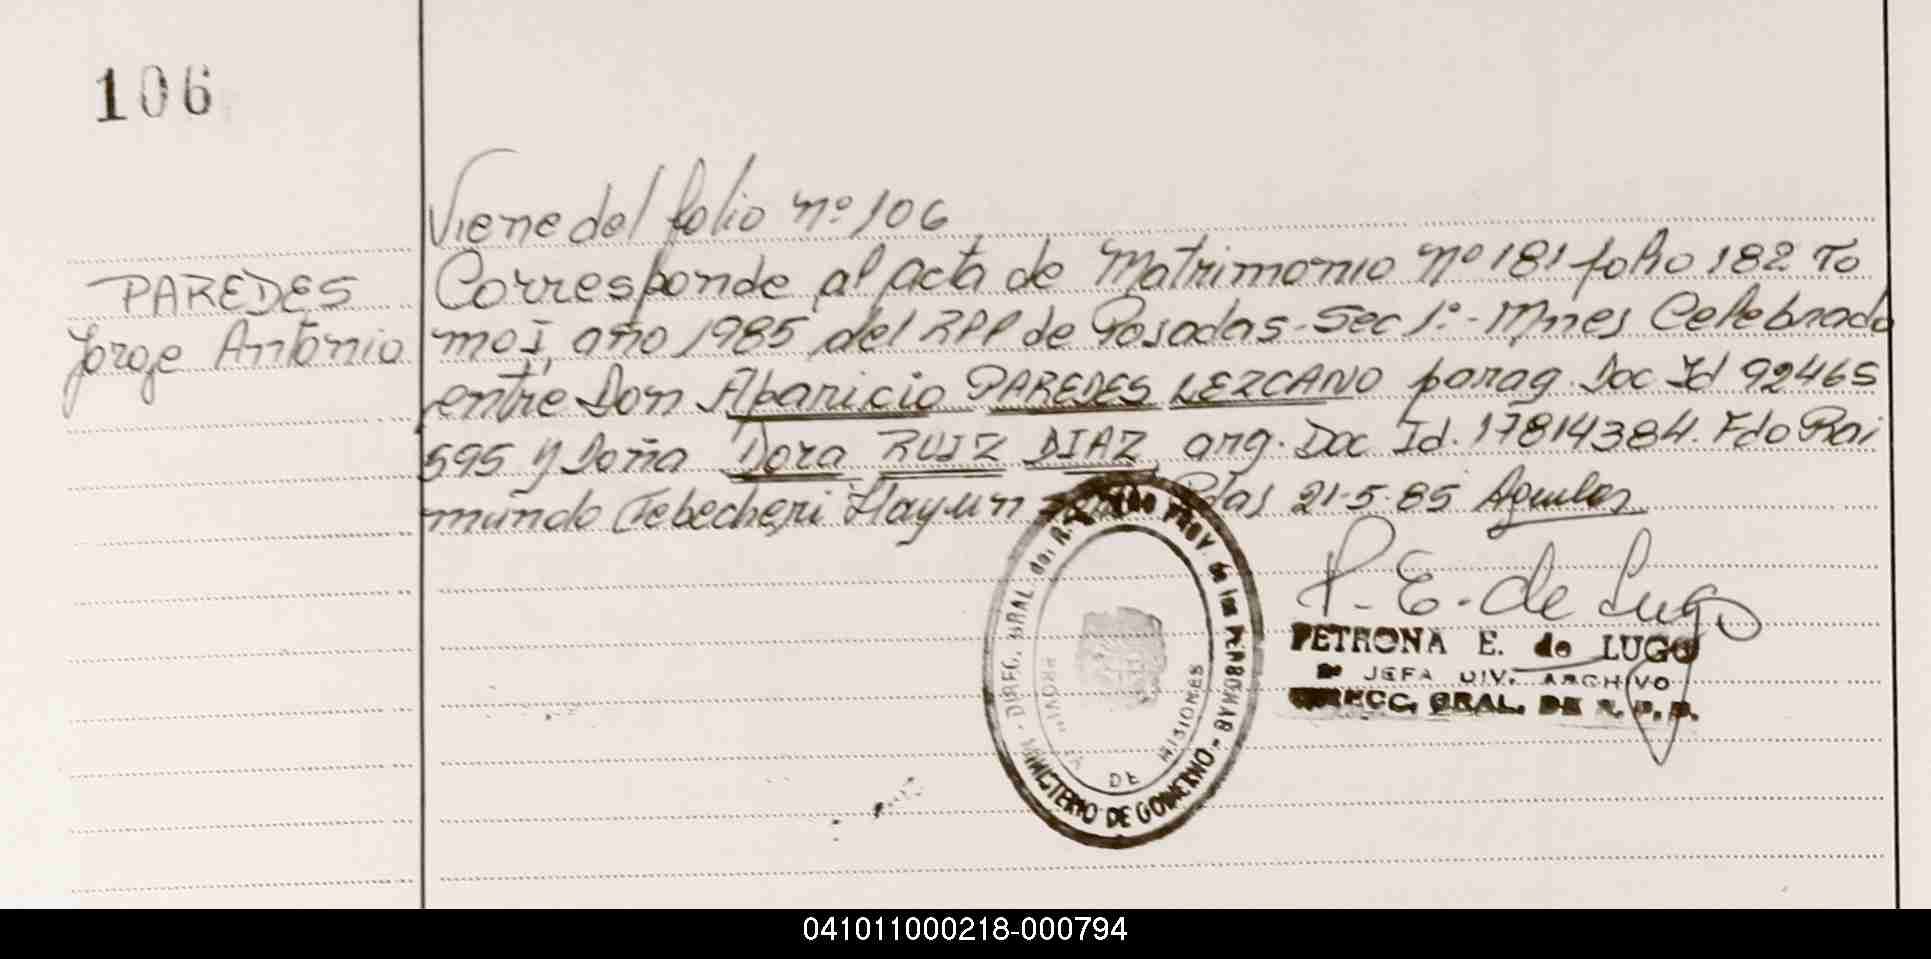 106
Viene del folio nº 106
PAREDES
Jorge Antonio
Corresponde al acta de Matrimonio nº 181 folio 182 To
mo I, año 1985 del RPP de Posadas - Sec 1º - Mnes Celebrado
entre Don Aparicio PAREDES LEZCANO parag. Doc Id 92465
595 y Doña Dora RUIZ DIAZ arg. Doc Id. 17814384. Fdo Rai
mundo Hayun Pdas 21-5-85 Aguilar
P. E. de Lugo
PETRONA E. de LUGO
JEFA DIV. ARCHIVO
DIRECC. GRAL. DE R. P. P.
DIREC. GRAL. del R. PROV. de las PERSONAS - MINISTERIO DE GOBIERNO -
PROVINCIA DE MISIONES
041011000218-000794